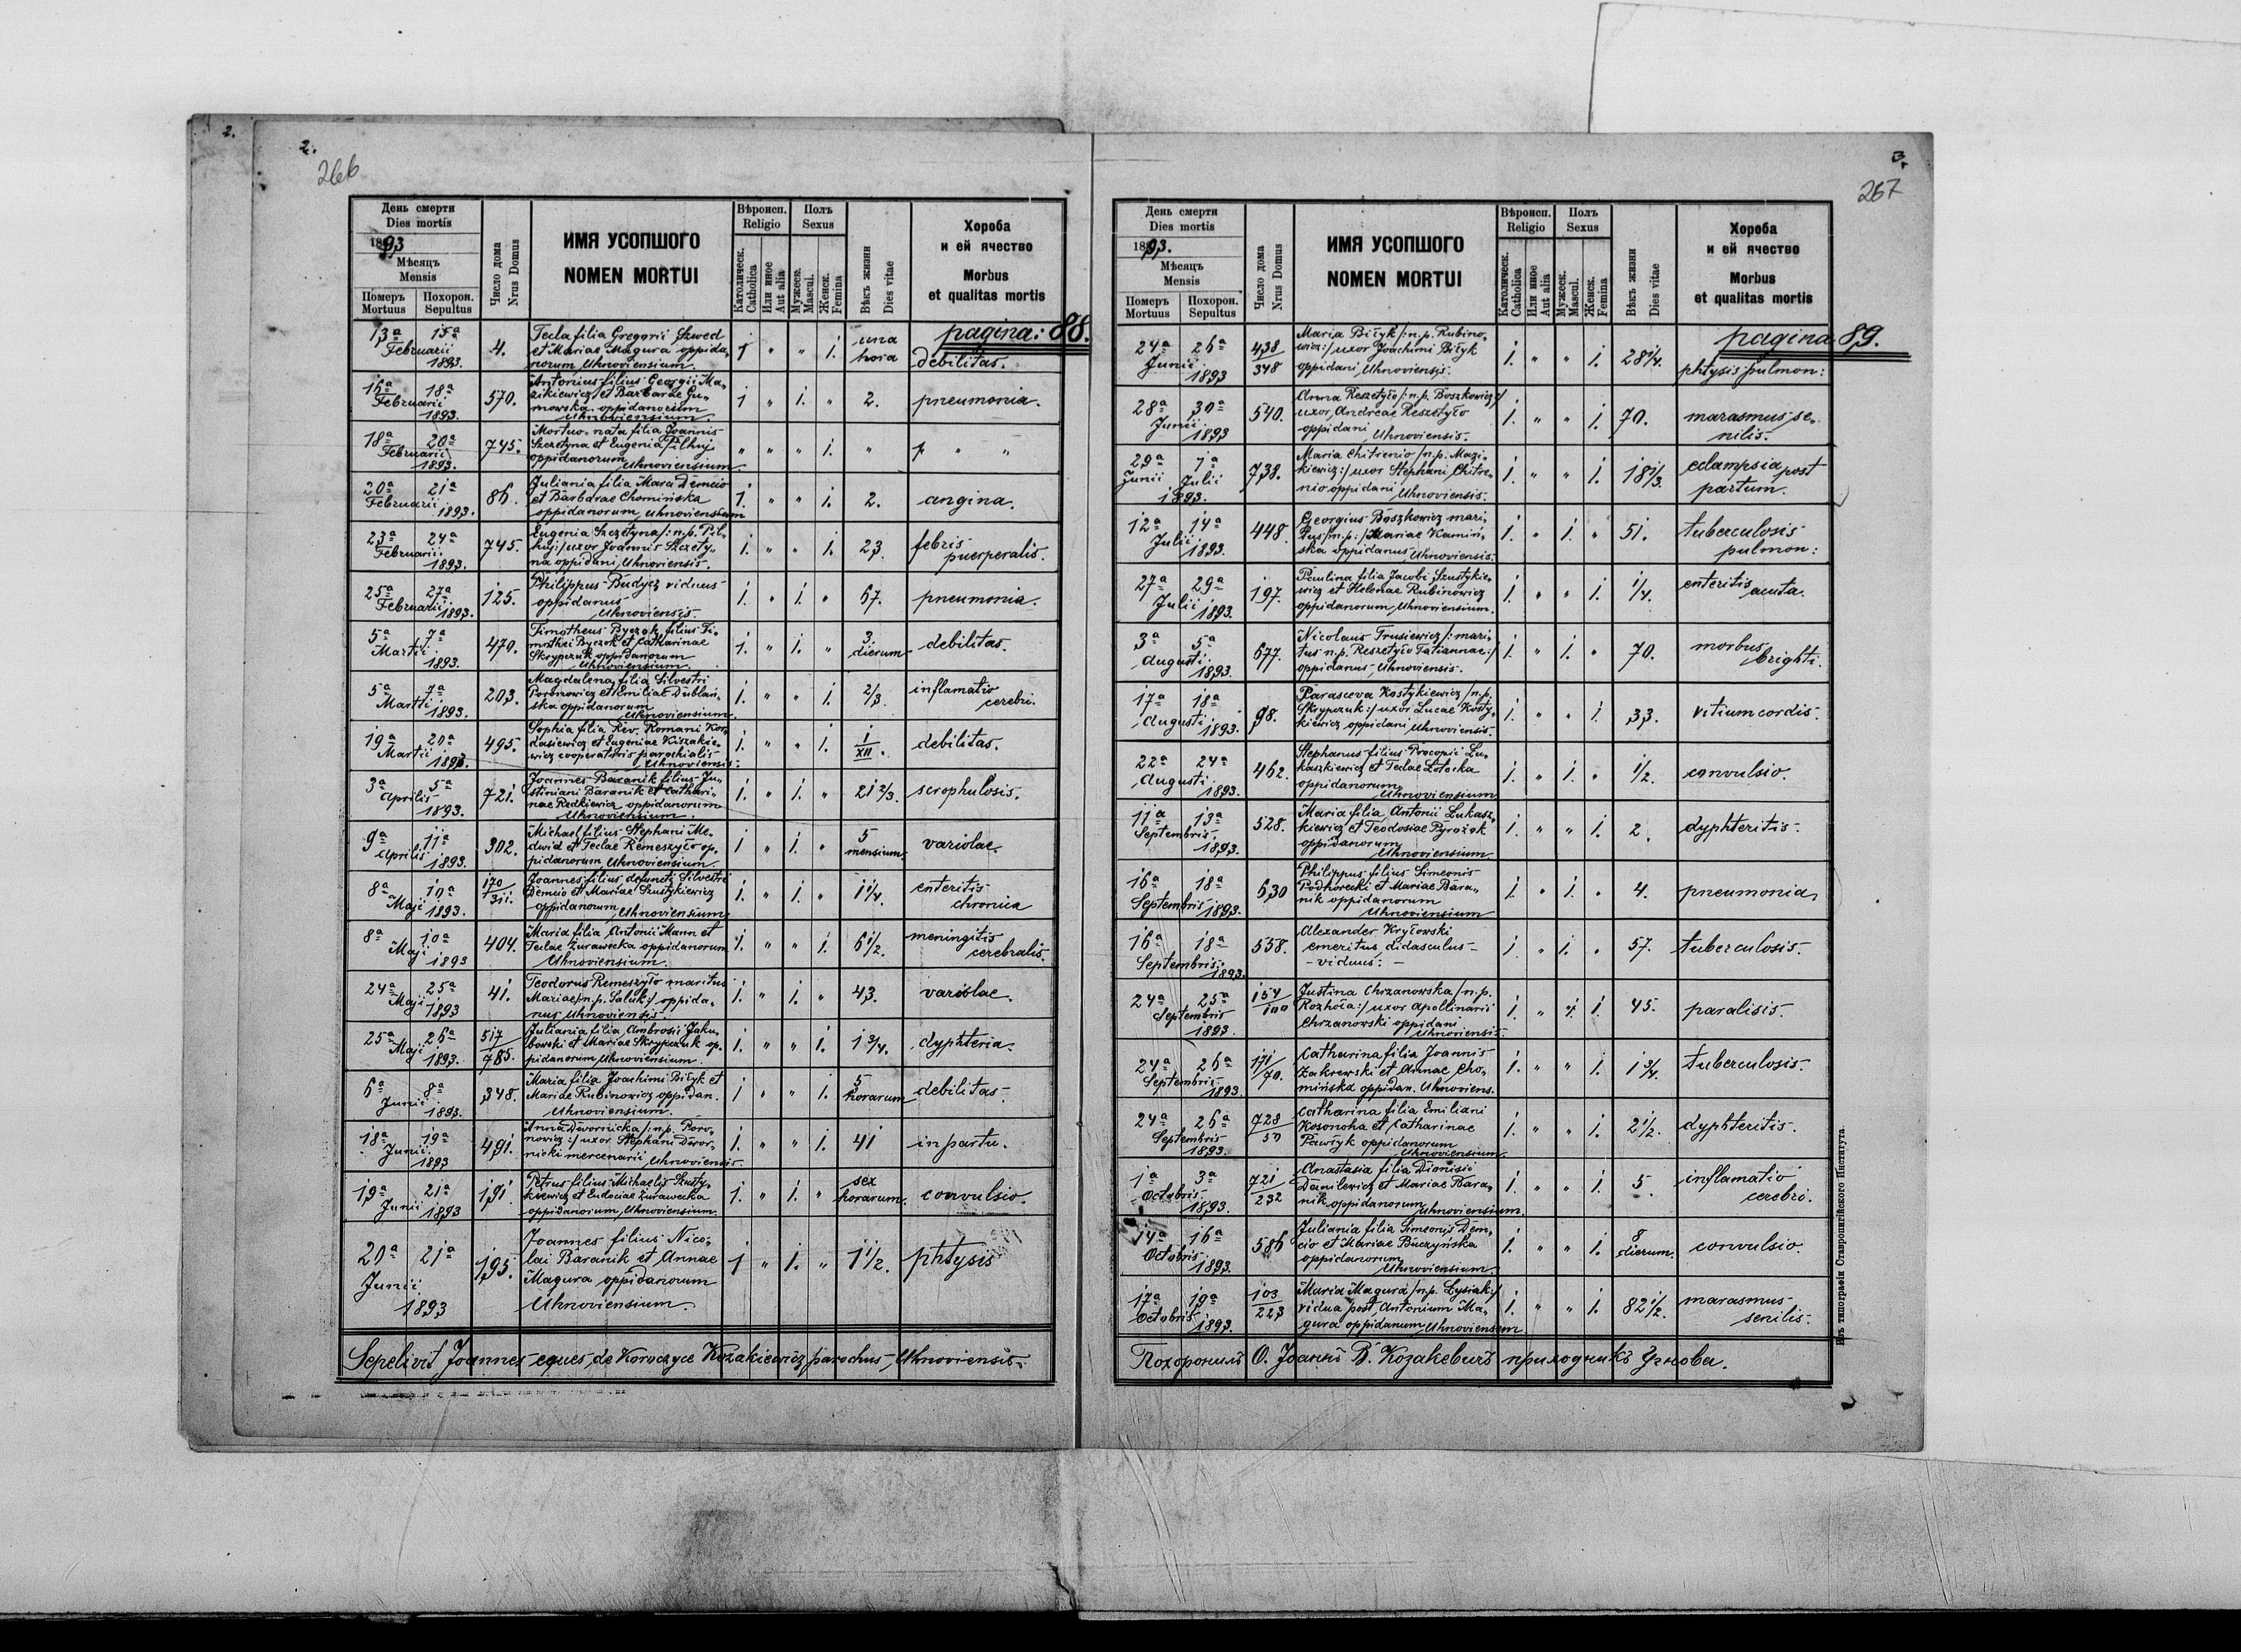 2.
2.
266
День смерти
Dies mortis
1893
Мѣсяцъ
Mensis
Померъ
Mortuus
Похорон.
Sepultus
Число дома
Nrus Domus
ИМЯ УСОПШОГО
NOMEN MORTUI
Вѣроисп.
Religio
Католическ.
Catholica
Или иное
Aut alia
Полъ
Sexus
Мужеск.
Mascul.
Женск.
Femina
Вѣкъ жизни
Dies vitae
Хороба
и ей ячество
Morbus
et qualitas mortis
pagina: 88.
13a 15a Februarii 1893. 4. Tecla filia Gregorii Szwed 1 " " 1. una hora debilitas.
et Mariae Magura oppida-
norum Uhnoviensium.
16a 18a Februarii 1893. 570. Antonius filius Georgii Ma- 1 " 1. " 2. pneumonia.
zikiewicz et Barbarae Gu-
mowska oppidanorum
Uhnoviensium
18a 20a Februarii 1893. 745. Mortuo-nata filia Joannis " " " 1. " " "
Szczetyna et Eugenia Pilhuj
oppidanorum Uhnoviensium.
20a 21a Februarii 1893. 86. Juliania filia Marci Demcio 1. " " 1. 2. angina.
et Barbarae Chomińska
oppidanorum Uhnoviensium
23a 24a Februarii 1893. 745. Eugenia Szczetyna /: n.p. Pil- 1. " " 1. 23 febris puerperalis.
huj :/ uxor Joannis Szczety-
na oppidani Uhnoviensis.
25a 27a Februarii 1893. 125. Philippus Budycz viduus 1. " 1. " 67. pneumonia.
oppidanus
Uhnoviensis.
5a 7a Martii 1893. 470. Timotheus Byczok filius Ti- 1. " 1. " 3 dierum debilitas.
mothei Byczok et Catharinae
Skrypczuk oppidanorum
Uhnoviensium.
5a 7a Martii 1893. 203. Magdalena filia Silvestri 1. " " 1. 2/3. inflamatio cerebri.
Poronowicz et Emiliae Dublań-
ska oppidanorum
Uhnoviensium.
19a 20a Martii 1893. 495. Sophia filia Rev. Romani Kor- 1. " " 1. 1/XII. debilitas.
dasiewicz et Eugeniae Kozakie-
wicz cooperatoris parochialis
Uhnoviensis.
3a 5a Aprilis 1893. 721. Joannes Baranik filius Ju- 1. " 1. " 21 2/3. scrophulosis.
stiniani Baranik et Cathari-
nae Redkiewicz oppidanorum
Uhnoviensium.
9a 11a Aprilis 1893. 302. Michael filius Stephani Me- 1 " 1. " 5 mensium. variolae.
dwid et Teclae Remeszyło op-
pidanorum Uhnoviensium.
8a 10a Maji 1893. 170/311. Joannes filius defuncti Silvestri 1. " 1. " 1 1/4. enteritis chronica
Demcio et Mariae Szustykiewicz
oppidanorum Uhnoviensium.
8a 10a Maji 1893 404. Maria filia Antonii Mann et 1. " " 1. 6 1/2. meningitis cerebralis.
Teclae Żurawecka oppidanorum
Uhnoviensium.
24a 25a Maji 1893 41. Teodorus Remeszyło maritus 1. " 1. " 43. variolae.
Mariae /:n.p. Saluk:/ oppida-
nus Uhnoviensis.
25a 26a Maji 1893. 517/785. Juliania filia Ambrosii Jaku- 1. " " 1. 1 3/4. dyphteria.
bowski et Mariae Skrypczuk op-
pidanorum Uhnoviensium.
6a 8a Junii 1893. 348. Maria filia Joachimi Biłyk et 1 " " 1. 5 horarum debilitas.
Mariae Rubinowicz oppidan.
Uhnoviensium.
18a 19a Junii 1893 491. Anna Dwornicka /: n.p. Poro- 1. " " 1. 41 in partu.
nowicz :/ uxor Stephani Dwor-
nicki mercenarii Uhnoviensis.
19a 21a Junii 1893 191 Petrus filius Michaelis Szusty- 1. " 1. " sex horarum. convulsio.
kiewicz et Eudociae Żurawecka
oppidanorum Uhnoviensium
20a 21a Junii 1893 195. Joannes filius Nico- 1 " 1. " 1 1/2. phtysis
lai Baranik et Annae
Magura oppidanorum
Uhnoviensium.
Sepelivit Joannes eques de Koroczyce Kozakiewicz parochus Uhnoviensis.
3.
267
День смерти
Dies mortis
1893.
Мѣсяцъ
Mensis
Померъ
Mortuus
Похорон.
Sepultus
Число дома
Nrus Domus
ИМЯ УСОПШОГО
NOMEN MORTUI
Вѣроисп.
Religio
Католическ.
Catholica
Или иное
Aut alia
Полъ
Sexus
Мужеск.
Mascul.
Женск.
Femina
Вѣкъ жизни
Dies vitae
Хороба
и ей ячество
Morbus
et qualitas mortis
pagina 89.
24a 26a Junii 1893 438/348 Maria Biłyk /: n.p. Rubino- 1. " " 1. 28 1/4. phtysis pulmon:
wicz :/ uxor Joachimi Biłyk
oppidani Uhnoviensis.
28a 30a Junii 1893 540. Anna Reszetyło /: n.p. Boszkowicz :/ 1. " " 1. 70. marasmus senilis.
uxor Andreae Reszetyło
oppidani Uhnoviensis.
29a Junii 1a Julii 1893. 738. Maria Chitrenio /n.p. Mazi- 1. " " 1. 18 1/3. eclampsia post partum.
kiewicz:/ uxor Stephani Chitre-
nio oppidani Uhnoviensis.
12a 14a Julii 1893. 448. Georgius Boszkowicz mari- 1. " 1. " 51. tuberculosis pulmon:
tus /n.p.:/ Mariae Kamiń-
ska oppidanus Uhnoviensis.
27a 29a Julii 1893. 197. Paulina filia Jacobi Szustykie- 1. " " 1. 1/4. enteritis acuta.
wicz et Helenae Rubinowicz
oppidanorum Uhnoviensium.
3a 5a Augusti 1893. 677. Nicolaus Trusiewicz /: mari- 1. " 1. " 70. morbus brighti.
tus n.p. Reszetyło Tatiannae:/
oppidanus Uhnoviensis.
17a 18a Augusti 1893. 98. Parasceva Kostykiewicz /n.p. 1. " " 1. 33. vitium cordis.
Skrypczuk:/ uxor Lucae Kosty-
kiewicz oppidani Uhnoviensis.
22a 24a Augusti 1893. 462. Stephanus filius Procopii Lu- 1. " 1. " 1/2. convulsio.
kaszkiewicz et Teclae Łotocka
oppidanorum
Uhnoviensium
11a 13a Septembris 1893. 528. Maria filia Antonii Łukasz- 1. " " 1. 2. dyphteritis.
kiewicz et Teodosiae Pyrożok
oppidanorum
Uhnoviensium.
16a 18a Septembris 1893. 630 Philippus filius Simeonis 1. " 1. " 4. pneumonia.
Podhorecki et Mariae Bara-
nik oppidanorum
Uhnoviensium
16a 18a Septembris 1893. 558. Alexander Kryłowski 1 " 1. " 57. tuberculosis.
emeritus didasculus
- viduus. -
24a 25a Septembris 1893. 154/100 Justina Chrzanowska /n.p. 1. " 1. 45. paralisis.
Rozhoła:/ uxor Apollinarii
Chrzanowski oppidani
Uhnoviensis.
24a 26a Septembris 1893 171/70. Catharina filia Joannis 1. " " 1. 1 3/4. tuberculosis.
Zakrewski et Annae Cho-
mińska oppidan. Uhnoviens.
24a 26a Septembris 1893. 728/50 Catharina filia Emiliani 1. " " 1. 2 1/2. dyphteritis.
Kosonoha et Catharinae
Pawłyk oppidanorum
Uhnoviensium.
1a 3a Octobris 1893. 721/232 Anastasia filia Dionisii 1. " " 1. 5. inflamatio cerebri.
Danilewicz et Mariae Bara-
nik oppidanorum Uhnoviensium.
14a 16a Octobris 1893. 586 Juliania filia Simeonis Dem- 1. " " 1. 8 dierum. convulsio.
cio et Mariae Buczyńska
oppidanorum
Uhnoviensium.
17a 19a Octobris 1893. 103/223 Maria Magura /n.p. Lysiak:/ 1. " " 1. 82 1/2. marasmus senilis.
vidua post Antonium Ma-
gura oppidanum Uhnoviensem
Похоронилъ О. Іоаннъ В. Козакевичъ приходникъ Угнова.
Изъ типографіи Ставропигійского Института.